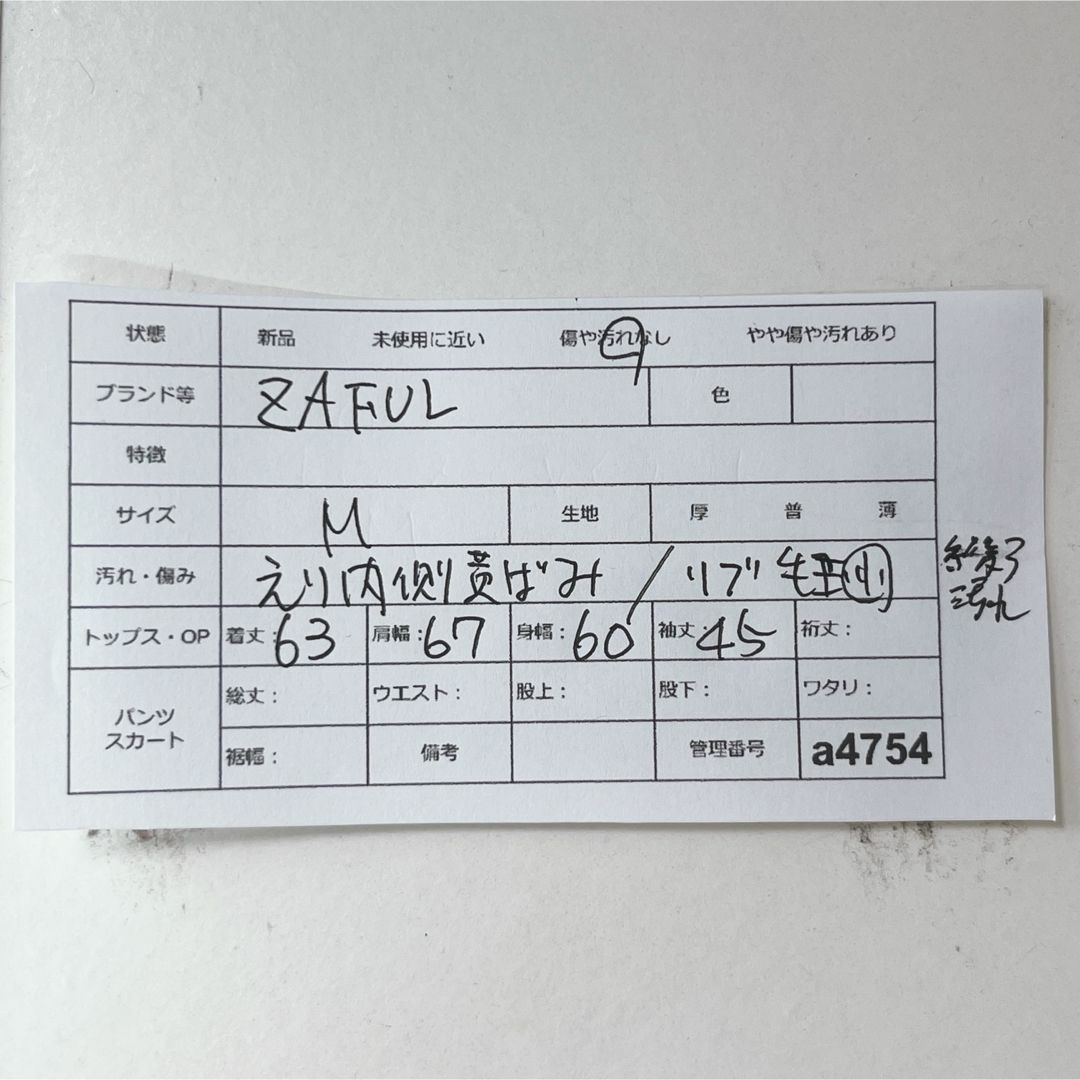 状態 新品 未使用に近い 傷や汚れなし やや傷や汚れあり
ブランド等 ZAFUL 色
特徴
サイズ M 生地 厚 普 薄
汚れ・傷み えり内側黄ばみ / リブ 小
トップス・OP 着丈: 63 肩幅: 67 身幅: 60 袖丈: 45 裄丈:
パンツ スカート 総丈: ウエスト: 股上: 股下: ワタリ:
裾幅: 備考 管理番号 a4754